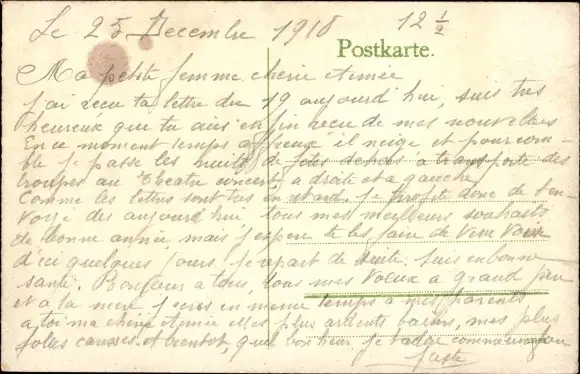 Le 25 Decembre 1918 12 1/2
Postkarte.
Ma petite femme cherie Aimée
J'ai recu ta lettre du 19 aujourd'hui, suis tres
heureux que tu ais enfin recu de mes nouvelles
En ce moment temps affreux il neige et pour com-
ble je passe les nuits dehors a transporter des
troupes au theatre concert, a droite et a gauche
Comme les lettres sont tres en retard, je profite donc de t'en-
voyé des aujourd'hui tous mes meilleurs souhaits
de bonne année mais j'espere te les faire de vive voix
d'ici quelques jours, je repart de suite, suis en bonne
santé. Bonjour a tous, tous mes voeux a grand pere
et a ta mere j'ecris en meme temps a mes parents
a toi ma cherie Aimée mes plus ardents baisers, mes plus
folles caresses. A bientot, quel bonheur, je